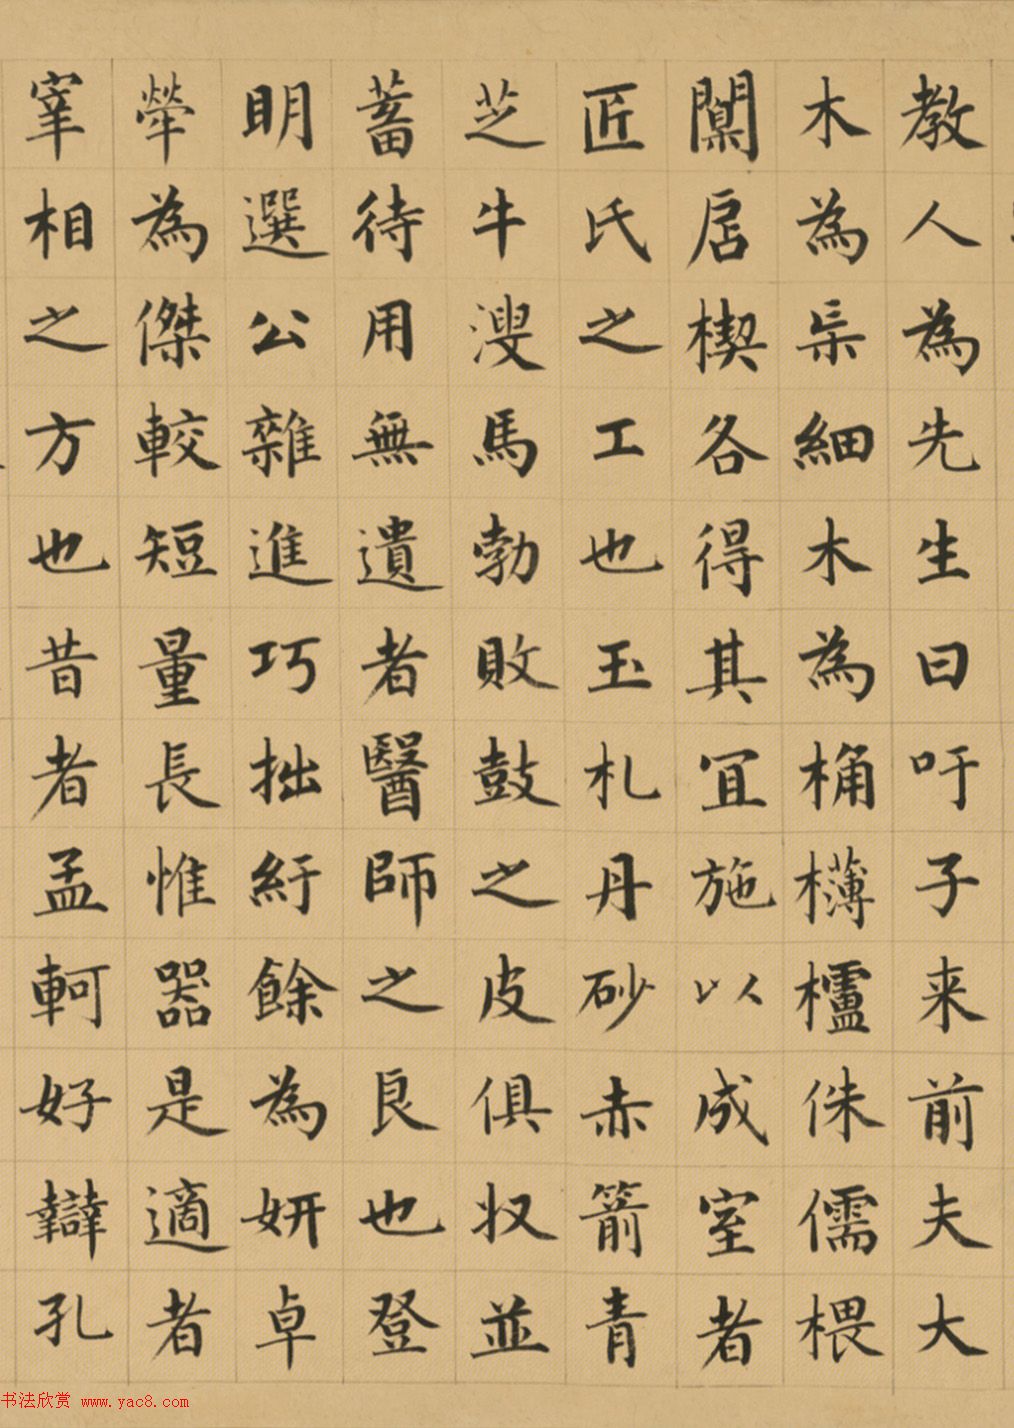 教人為先生曰吁子来前夫大
木為杗細木為桷欂櫨侏儒椳
闑扂楔各得其宜施以成室者
匠氏之工也玉札丹砂赤箭青
芝牛溲馬勃敗鼓之皮俱收並
蓄待用無遺者醫師之良也登
明選公雜進巧拙紆餘為妍卓
犖為傑較短量長惟器是適者
宰相之方也昔者孟軻好辯孔
书法欣赏 www.yac8.com